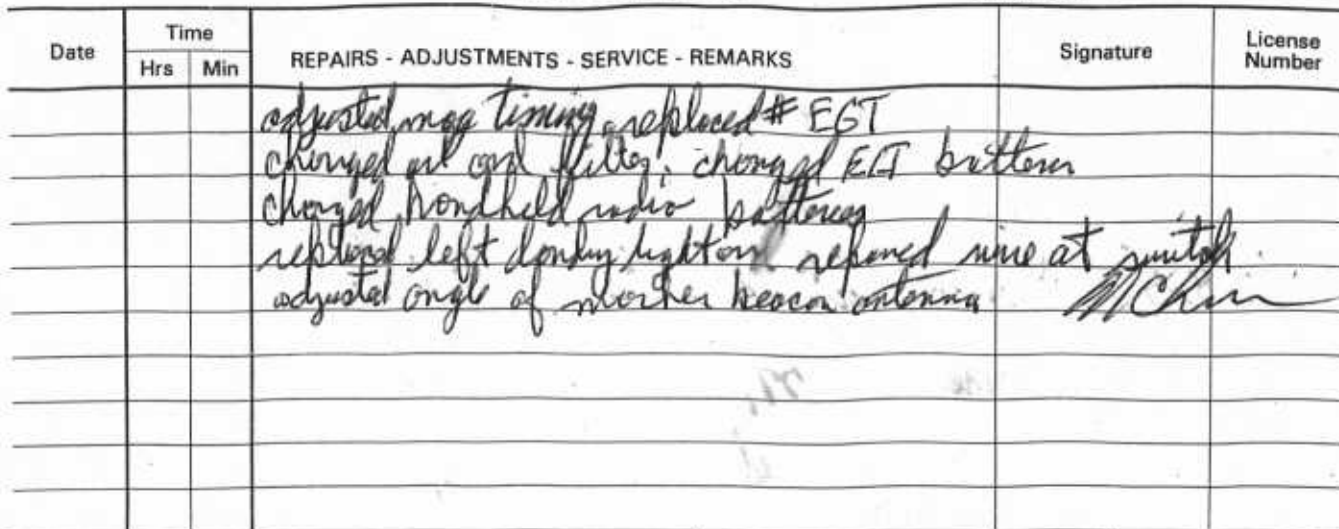 Date
Time
Hrs Min
REPAIRS - ADJUSTMENTS - SERVICE - REMARKS
Signature
License Number
adjusted mag timing replaced # EGT
changed oil and filter, changed batteries
changed handheld radio batteries
replaced left light repaired wire at switch
adjusted angle of marker beacon antenna